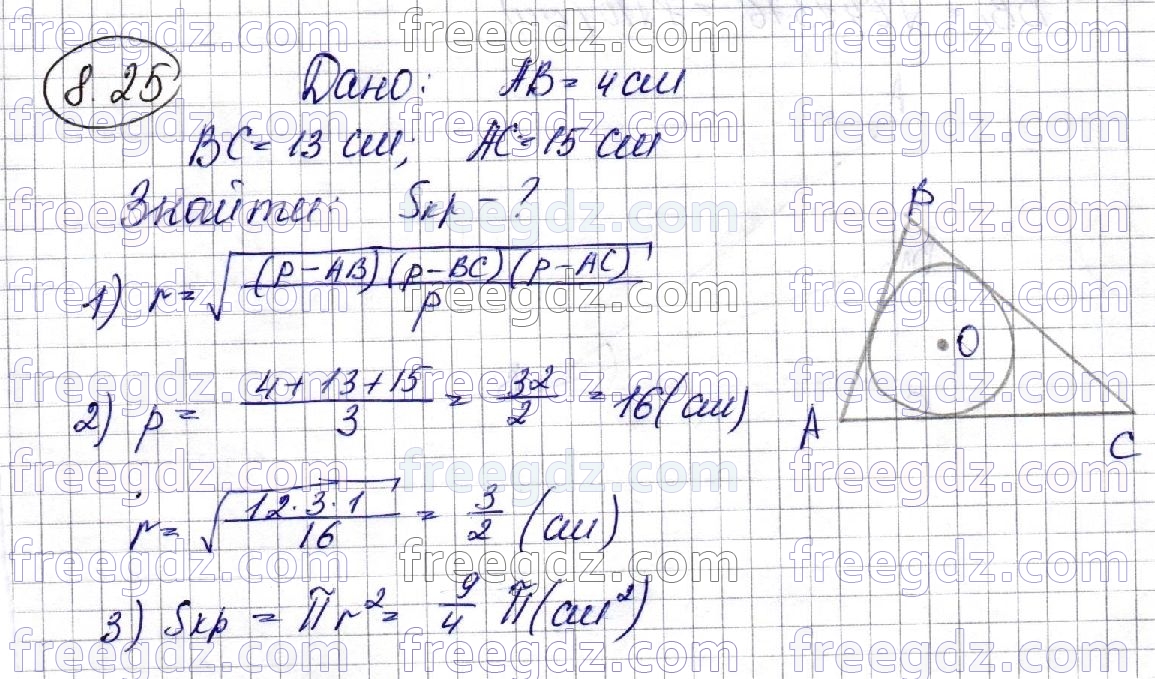 8.25 Дано: AB = 4 см
BC = 13 см; AC = 15 см
Знайти: Sкр - ?
1) r = √((p - AB)(p - BC)(p - AC) / p)
2) p = (4 + 13 + 15) / 3 = 32 / 2 = 16 (см)
r = √(12 · 3 · 1 / 16) = 3 / 2 (см)
3) Sкр = Πr² = 9/4 Π (см²)
B
O
A
C
freegdz.com